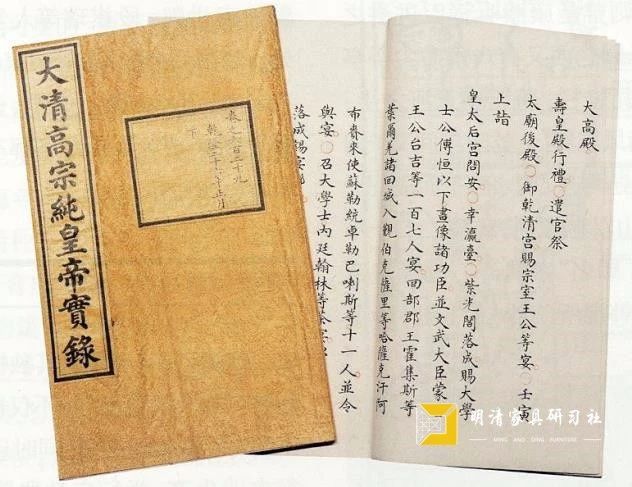 大清高宗純皇帝實錄
大高殿
壽皇殿行禮○遣官祭
太廟後殿○御乾清宮賜宗室王公等宴○壬寅
上詣
皇太后宮問安○幸瀛臺○紫光閣落成賜大學
士公傅恒以下畫像諸功臣並文武大臣蒙
王公台吉等一百七人宴回部郡王霍集斯等
葉爾羌諸回城入觀伯克薩里等哈薩克汗阿
布賚來使蘇勒統卓勒巴喇斯等十一人並令
與宴○召大學士內廷翰林等
落成錫宴
明清家具研习社
MING AND QING FURNITURE